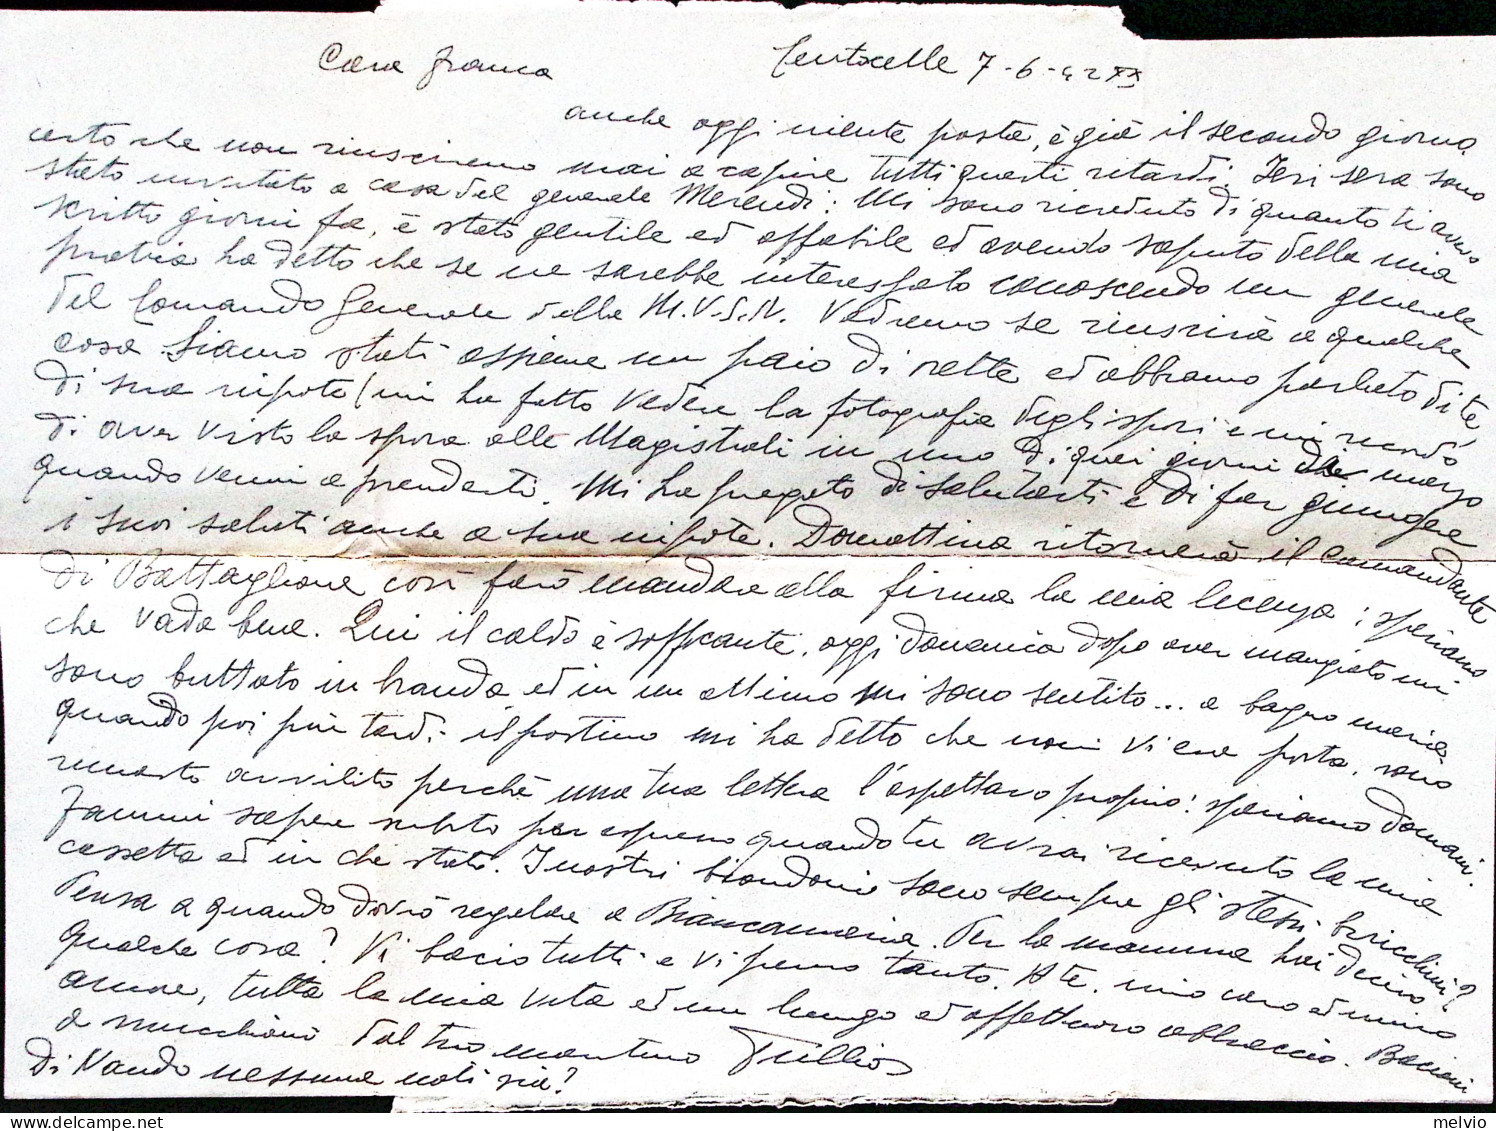 Cara Franca
Centocelle 7-6-42 XX
anche oggi niente posta, è già il secondo giorno.
certo che non riusciremo mai a capire tutti questi ritardi. Ieri sera sono
stato invitato a casa del generale Merendi: Mi sono ricreduto di quanto ti avevo
scritto giorni fa, è stato gentile ed affabile ed avendo saputo della mia
pratica ha detto che se ne sarebbe interessato conoscendo un generale
del Comando Generale della M.V.S.N. Vedremo se riuscirà a qualche
cosa. Siamo stati assieme un paio di sette ed abbiamo parlato di te,
di sua nipote (mi ha fatto vedere la fotografia degli sposi e mi ricordò
di aver visto la sposa alle Magistrali in uno di quei giorni di marzo
quando venni a prenderti. Mi ha pregato di salutarti e di far giungere
i suoi saluti anche a sua nipote. Domattina ritornerà il comandante
di Battaglione così farò mandare alla firma la mia licenza; speriamo
che vada bene. Qui il caldo è soffocante, oggi domenica dopo aver mangiato mi
sono buttato in branda ed in un attimo mi sono sentito... a bagno maria
quando poi più tardi il postino mi ha detto che non vi era posta, sono
rimasto avvilito perchè una tua lettera l'aspettavo proprio: speriamo domani.
Fammi sapere subito per espresso quando tu avrai ricevuto la mia
cassetta ed in che stato. I nostri biondoni sono sempre gli stessi bricchini?
Pensa a quando dovrò regalare a Biancamaria. Per la mamma hai deciso
qualche cosa? Vi bacio tutti e vi penso tanto. A te, mio caro ed unico
amore, tutta la mia vita ed un lungo ed affettuoso abbraccio. Bacioni
a mucchioni dal tuo maritino Tullio
Di Nando nessuna notizia?
melvio